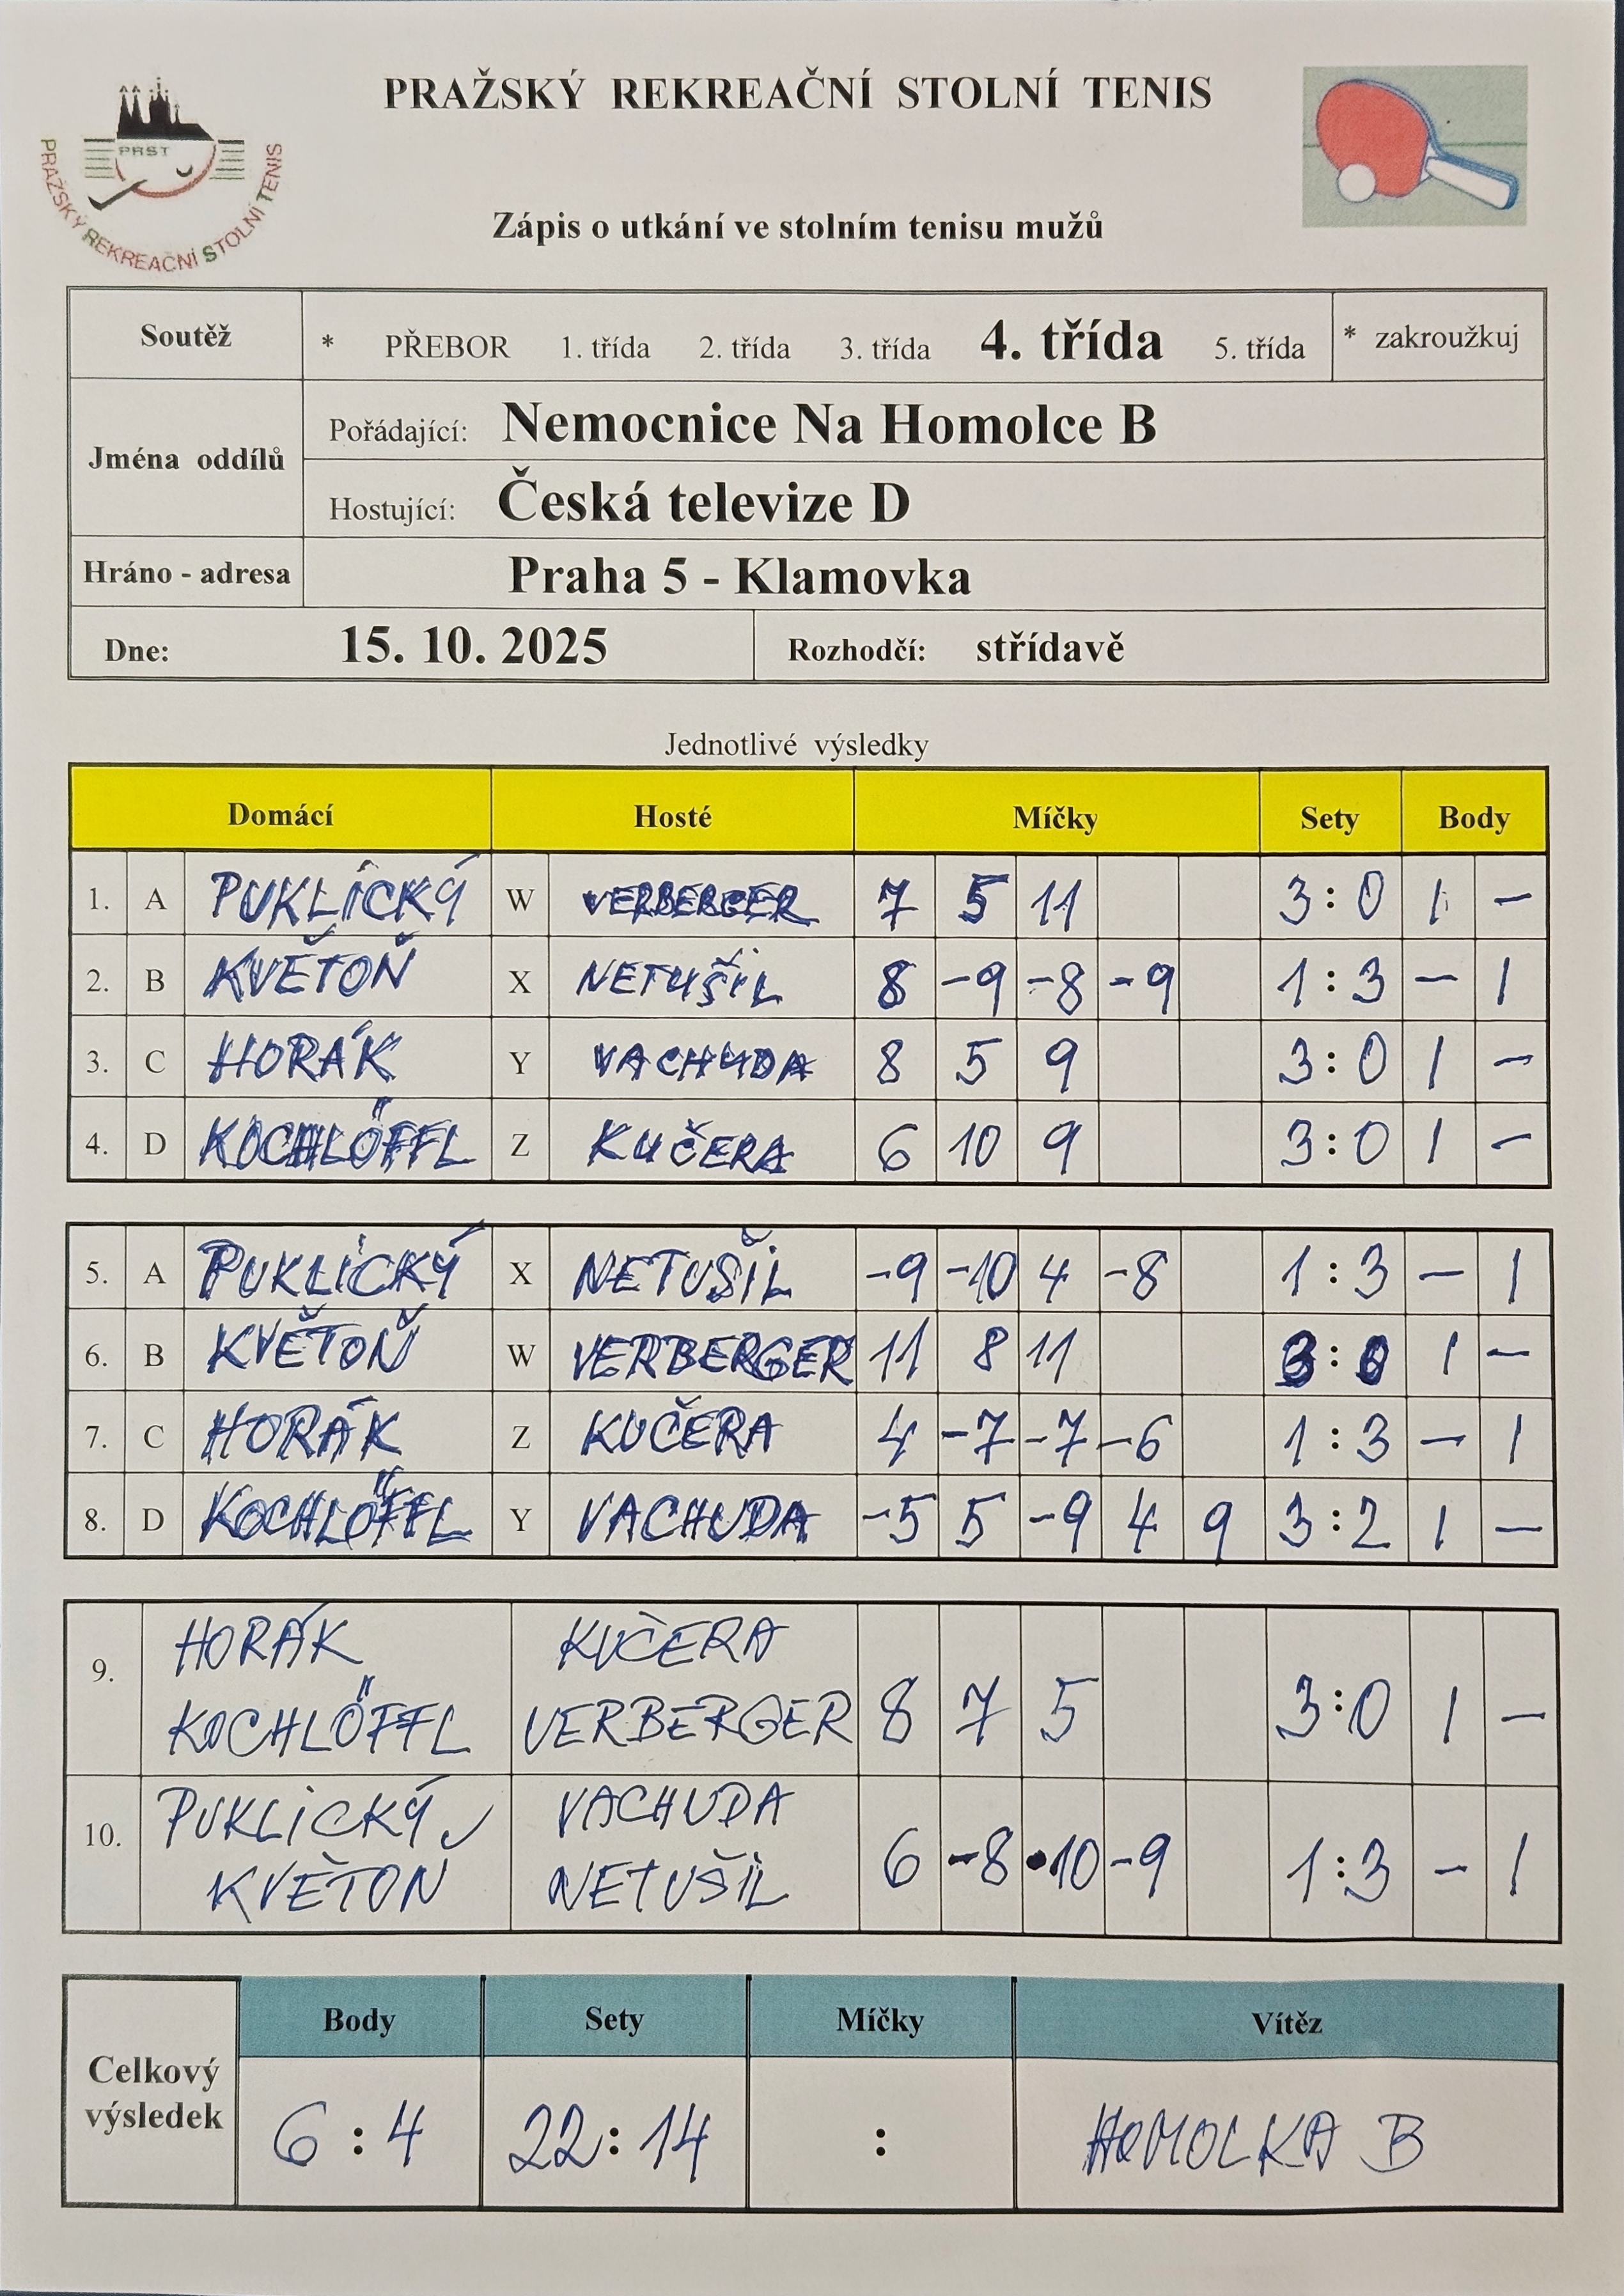 PRAŽSKÝ REKREAČNÍ STOLNÍ TENIS
PRST
PRAŽSKÝ REKREAČNÍ STOLNÍ TENIS
Zápis o utkání ve stolním tenisu mužů
Soutěž * PŘEBOR 1. třída 2. třída 3. třída 4. třída 5. třída * zakroužkuj
Jména oddílů
Pořádající: Nemocnice Na Homolce B
Hostující: Česká televize D
Hráno - adresa Praha 5 - Klamovka
Dne: 15. 10. 2025 Rozhodčí: střídavě
Jednotlivé výsledky
Domácí Hosté Míčky Sety Body
1. A PUKLICKÝ W VERBERGER 7 5 11 3:0 1 -
2. B KVĚTOŇ X NETUŠIL 8 -9 -8 -9 1:3 - 1
3. C HORÁK Y VACHUDA 8 5 9 3:0 1 -
4. D KOCHLÖFFL Z KUČERA 6 10 9 3:0 1 -
5. A PUKLICKÝ X NETUŠIL -9 -10 4 -8 1:3 - 1
6. B KVĚTOŇ W VERBERGER 11 8 11 3:0 1 -
7. C HORÁK Z KUČERA 4 -7 -7 -6 1:3 - 1
8. D KOCHLÖFFL Y VACHUDA -5 5 -9 4 9 3:2 1 -
9. HORÁK KUČERA
KOCHLÖFFL VERBERGER 8 7 5 3:0 1 -
10. PUKLICKÝ VACHUDA
KVĚTOŇ NETUŠIL 6 -8 -10 -9 1:3 - 1
Celkový výsledek
Body Sety Míčky Vítěz
6:4 22:14 : HOMOLKA B